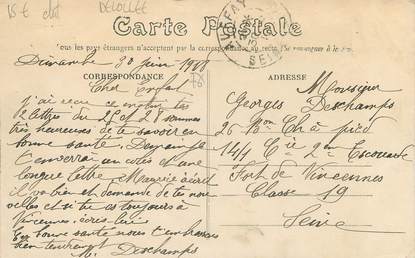 15 € dit
DELOLLE
Carte Postale
Tous les pays étrangers n'acceptent pas la correspondance au recto (Se renseigner à la Poste)
CORRESPONDANCE
ADRESSE
Dimanche 30 juin 1918
Cher Enfant
j'ai recu ce matin tes
2 lettres du 27 et 28 sommes
très heureuses de te savoir en
bonne santé. Demande
t'enverrai un colis et une
longue lettre Maurice a écrit
il va bien et demande de tes nou
velles et si tu es toujours à
Vincennes. écris-lui
En bonne santé nous t'embrassons
bien tendrement Deschamps
Monsieur
Georges Deschamps
26 Bon Ch à pied
144 Cie 2me Escouade
Fort de Vincennes
Classe 19
Seine